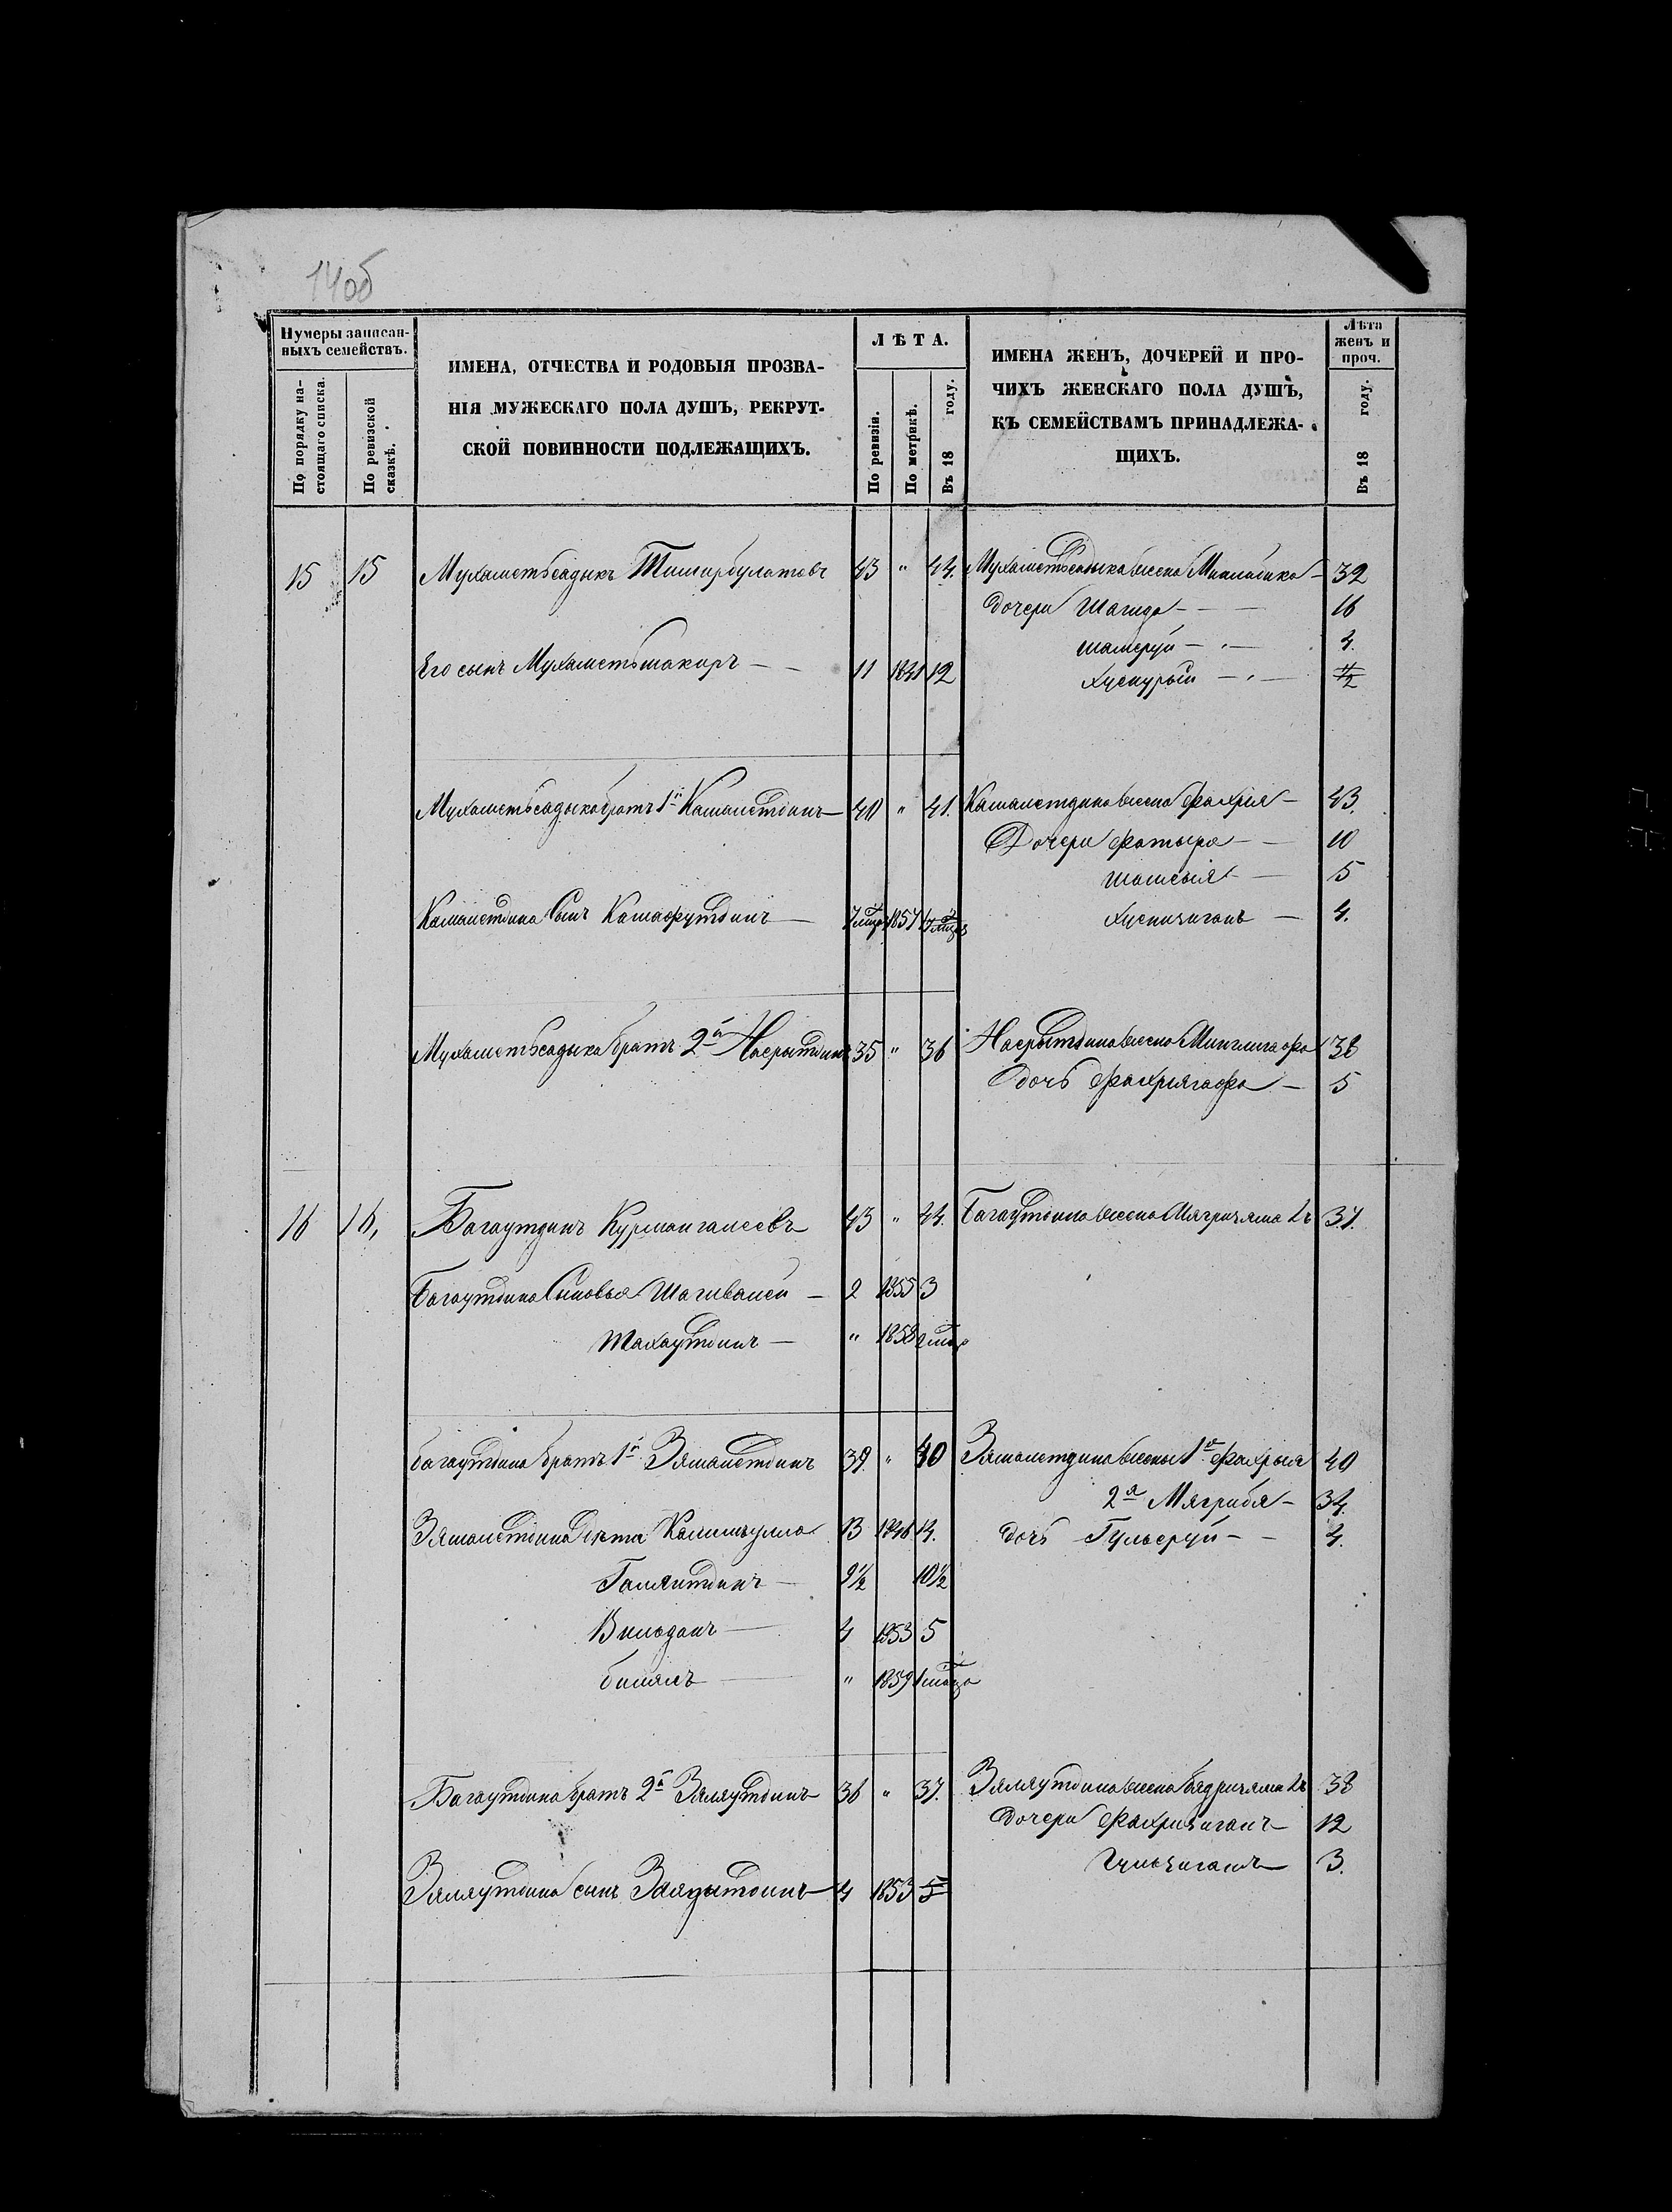 14об
Нумеры записан-
ныхъ семействъ.
По порядку на-
стоящаго списка.
По ревизской
сказкѣ.
ИМЕНА, ОТЧЕСТВА И РОДОВЫЯ ПРОЗВА-
НІЯ МУЖЕСКАГО ПОЛА ДУШЪ, РЕКРУТ-
СКОЙ ПОВИННОСТИ ПОДЛЕЖАЩИХЪ.
ЛѢТА.
По ревизіи.
По метрикѣ.
Въ 18 году.
ИМЕНА ЖЕНЪ, ДОЧЕРЕЙ И ПРО-
ЧИХЪ ЖЕНСКАГО ПОЛА ДУШЪ,
КЪ СЕМЕЙСТВАМЪ ПРИНАДЛЕЖА-
ЩИХЪ.
Лѣта
женъ и
проч.
Въ 18 году.
15 15 Мухаметьсадыкъ Тимирбулатовъ 43 " 44. Мухаметьсадыка жена 32
Дочери Шагида 16
шамсруй 4.
Его сынъ Мухаметьшакиръ 11 1841 12
1/2
Мухаметьсадыка братъ 1й Камалетдинъ 40 " 41. Камалетдина жена Фахрія 43.
Дочери Фатыра 10
Шамсыя 5
Камалетдина Сынъ 1857
Хуснизиганъ 4.
Мухаметьсадыка братъ 2й Насрытдинъ 35 " 36 Насрытдина жена Минлигафа 38
дочь Фахрягафа 5
16 16, Багаутдинъ Курмангалеевъ 43 " 44. Багаутдина жена Мягризямалъ 37.
Багаутдина Сыновья Шагивалей 2 1855 3
Махаутдинъ " 1858
Багаутдина братъ 1й Зямалетдинъ 39. " 40 Зямалетдина жены 1я Фахрыя 40
2я Мягрибя 34.
Зямалетдина Дѣти Калимулла 13 1846 14. дочь Гульсруй 4.
Галяитдинъ 9½ 10½
Вильданъ 4 1853 5
билялъ " 1859
Багаутдина братъ 2й Зяляутдинъ 36 " 37. Зяляутдина жена Бядризямалъ 38
Дочери Фахризиганъ 12
Гульзиганъ 3.
Зяляутдина сынъ 4 1853 5